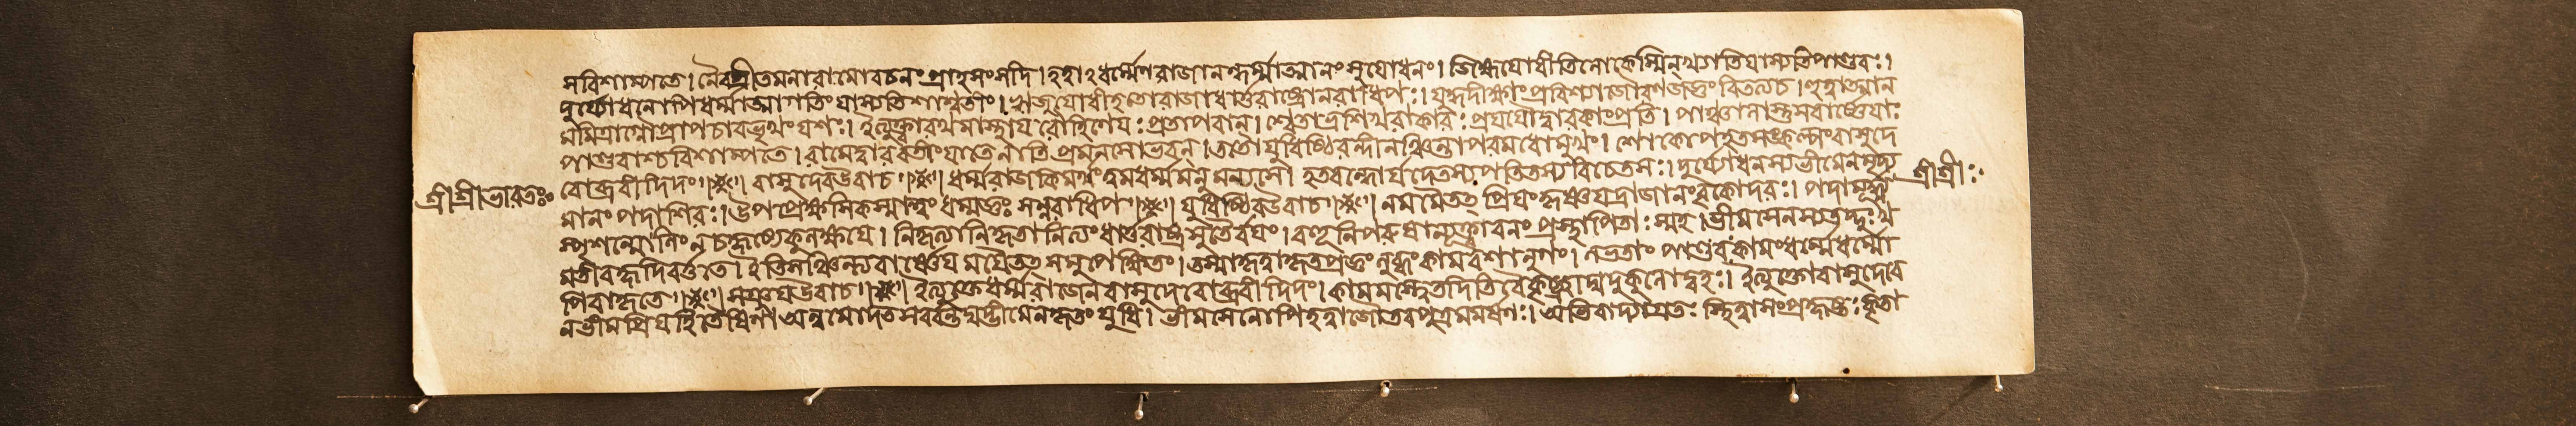 সবিশাম্পতে। নৈবপ্রীতমনারামোবচনংপ্রাহসংসদি। হত্বাধর্ম্মেণরাজানন্ধর্ম্মাত্মানংসুযোধনং। জিহ্মযোধীতিলোকেস্মিন্খ্যাতিংযাস্যতিপাণ্ডবঃ।
দুর্য্যোধনোপিধর্ম্মাত্মাগতিংযাস্যতিশাশ্বতীং। ঋজুযোধীহতোরাজাধার্ত্তরাষ্ট্রোনরাধিপঃ। যুদ্ধদীক্ষাংপ্রবিশ্যাজৌরণযজ্ঞংবিতত্যচ। হুত্বাত্মান
মমিত্রাগ্নৌপ্রাপচাবভৃথংযশঃ। ইত্যুক্ত্বারথমাস্থায রৌহিণেযঃপ্রতাপবান্। শ্বেতাভ্রশিখরাকারঃপ্রযযৌদ্বারকাংপ্রতি। পাঞ্চালাস্তুসবার্ষ্ণেযাঃ
পাণ্ডবাশ্চবিশাম্পতে। রামেদ্বারবতীংযাতেনাতিপ্রমনসোভবন্। ততোযুধিষ্ঠিরন্দীনঞ্চিন্তাপরমধোমুখং। শোকোপহতসঙ্কল্পংবাসুদে
শ্রীশ্রীভারতঃ বোব্রবীদিদং। বাসুদেবউবাচ। ধর্ম্মরাজকিমর্থংত্বমধর্ম্মমনুমন্যসে। হতবন্ধোর্যদেতস্যপতিতস্যবিচেতসঃ। দুর্য্যোধনস্যভীমেনমৃদ্য শ্রীশ্রীঃ
মানংপদাশিরঃ। উপপ্রেক্ষসিকস্মাত্ত্বংধর্ম্মজ্ঞঃসন্নরাধিপ। যুধিষ্ঠিরউবাচ। নমমৈতত্ প্রিযংকৃষ্ণযদ্রাজানংবৃকোদরঃ। পদামূর্দ্ধ্ন্য
স্পৃশত্ক্রোধান্নচহৃষ্যেকুলক্ষযে। নিকৃত্যানিকৃতানিত্যংধার্ত্তরাষ্ট্রসুতৈর্বযং। বহূনিপরুষাণ্যুক্ত্বাবনংপ্রস্থাপিতাঃস্মহ। ভীমসেনস্যতদ্দুঃখ
মতীবহৃদিবর্ত্ততে। ইতিসঞ্চিন্ত্যবার্ষ্ণেযমযৈতত্ সমুপেক্ষিতং। তস্মাদ্ধত্বাকৃতপ্রজ্ঞংলুব্ধংকামবশানুগং। লভতাংপাণ্ডবঃকামংধর্ম্মেধর্ম্মো
পিবাকৃতে। সঞ্জযউবাচ। ইত্যুক্তেধর্ম্মরাজেনবাসুদেবোব্রবীদিদং। কামমস্ত্বেতদিতিবৈকৃচ্ছ্রাদ্যদুকুলোদ্বহঃ। ইত্যুক্তোবাসুদেবে
নভীমপ্রিযহিতৈষিণা। অন্বমোদতসর্বন্তদ্যদ্ভীমেনকৃতংযুধি। ভীমসেনোপিহত্বাজৌতবপুত্রমমর্ষণঃ। অভিবাদ্যাগ্রতঃ স্থিত্বাসংপ্রহৃষ্টঃকৃতা